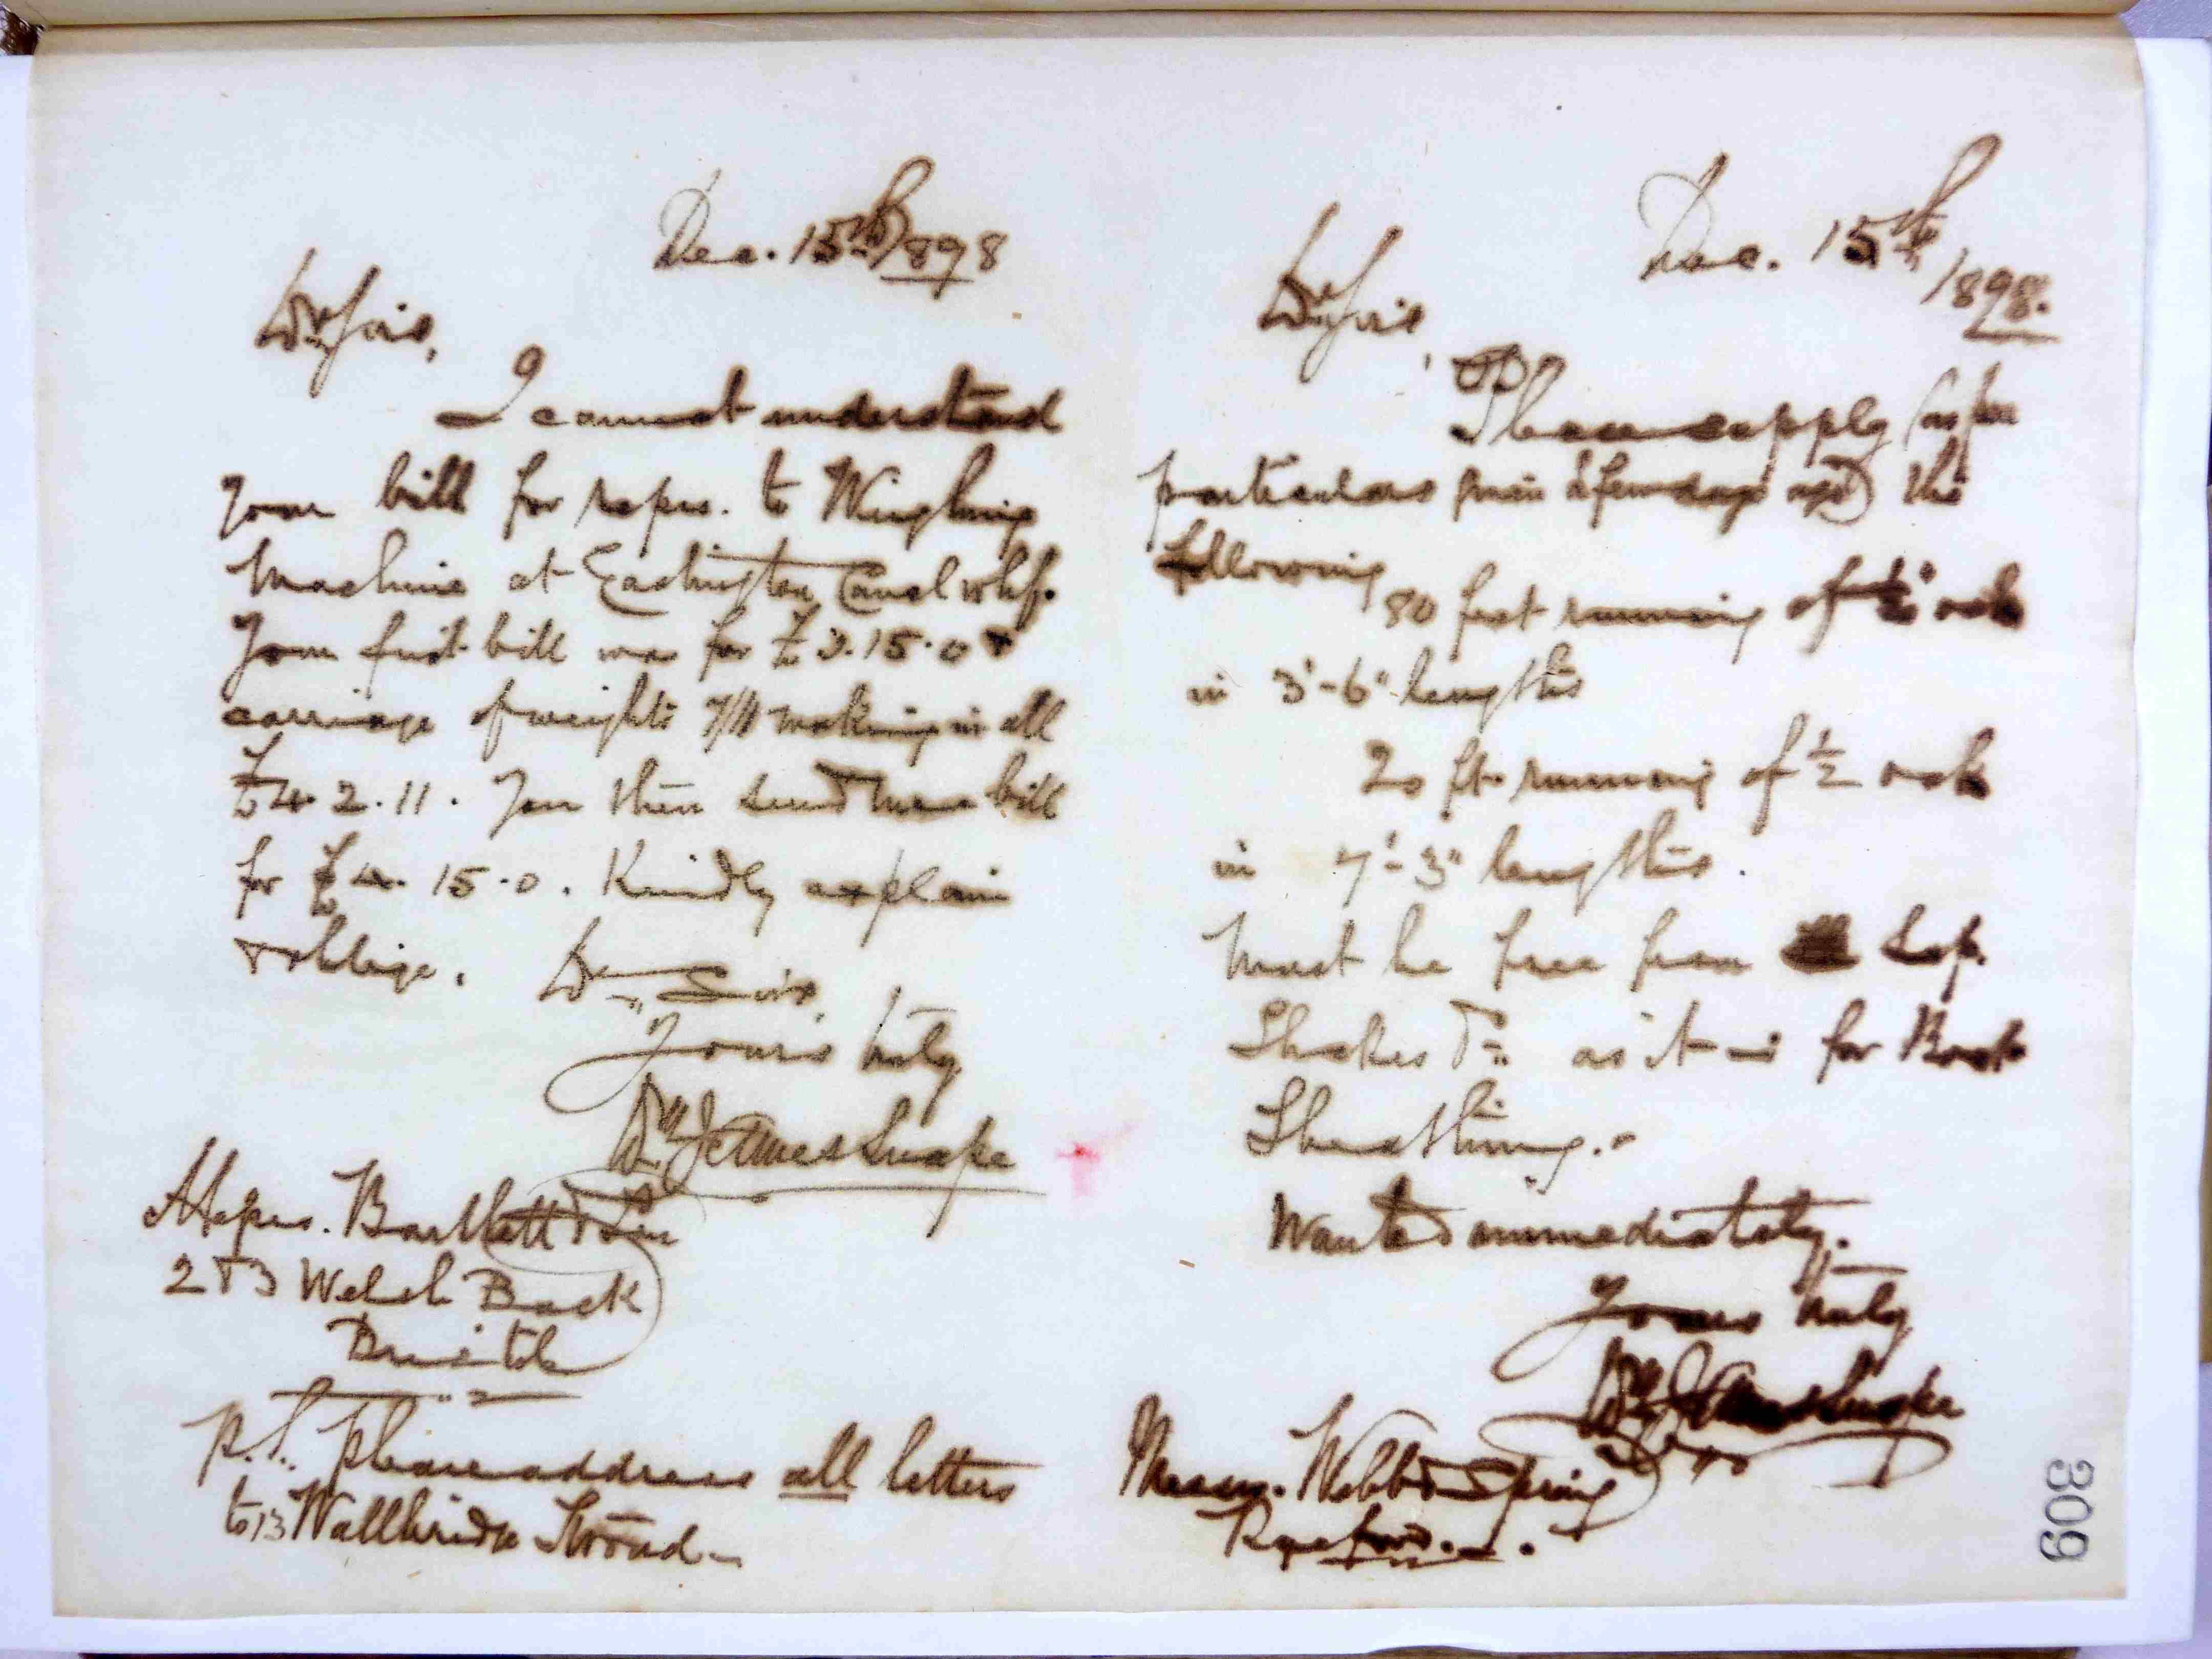 Dec. 15th/898
Dr Sirs,
I cannot understand
your bill for reprs. to Weighing
Machine at Eastington Canal whf.
Your first bill was for £3.15.0 &
carriage of weights 7/11 making in all
£4.2.11. You then send me a bill
for £4.15.0. Kindly explain
& oblige. Dr Sirs,
Yours truly
Wm James Snape
Messrs. Bartlett & Son
2 & 3 Welsh Back
Bristol
P.S. Please address all letters
to 13 Wallbridge Stroud
Dec. 15th/1898.
Dr Sirs,
Please supply (as per
particulars given a few days ago) the
following
80 feet running of 1½" oak
in 3'-6" lengths
20 ft. running of ½ oak
in 7'-3" lengths.
Must be free from Sap.
Shakes &c as it is for Boat
Sheathing.
Wanted immediately.
Yours truly
Wm James Snape
Messrs. Webb & Spring
Ryeford.
309